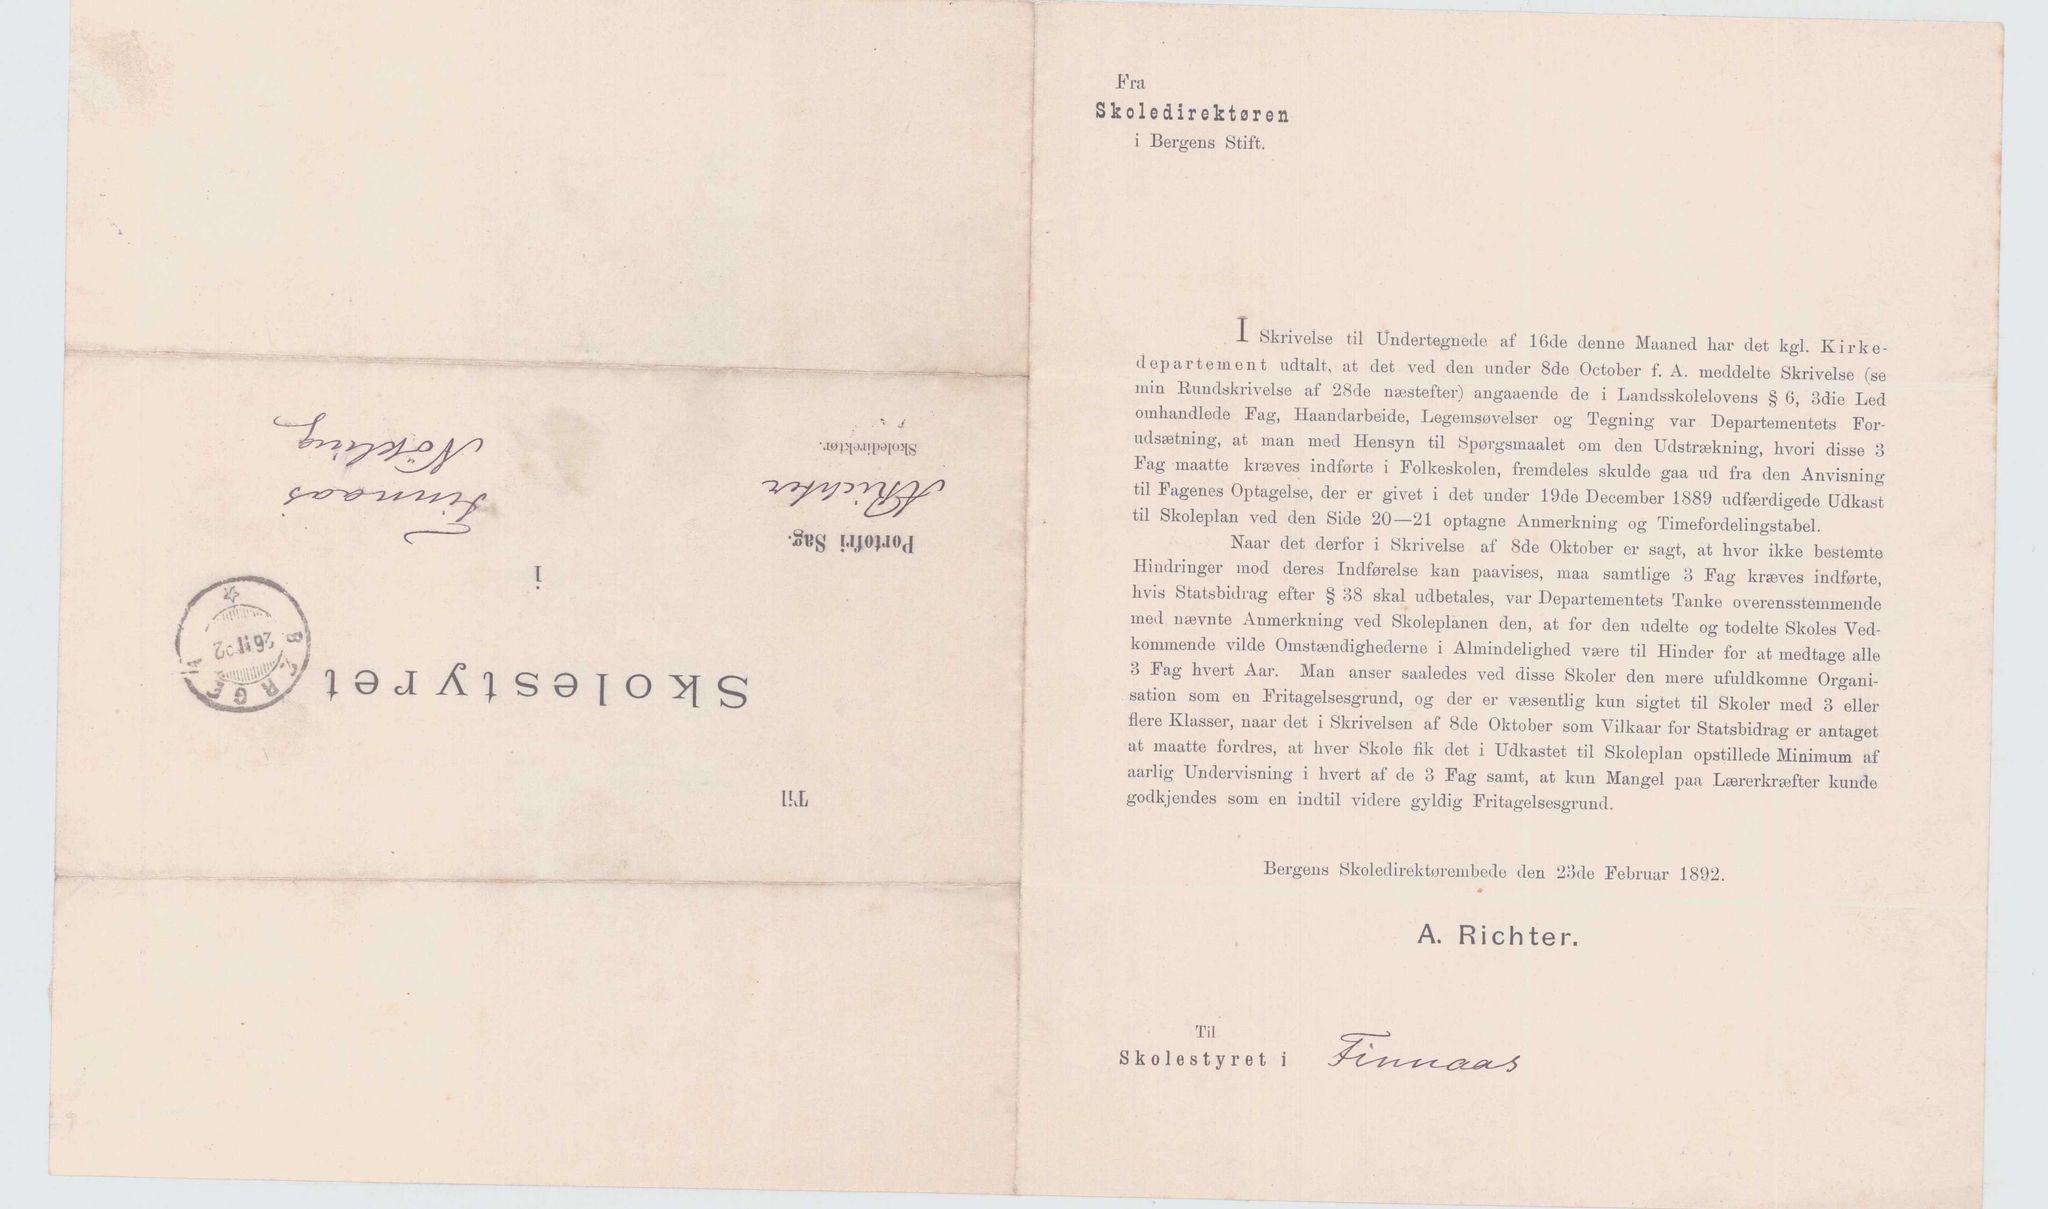 Fra
Skoledirektøren
i Bergens Stift.
I Skrivelse til Undertegnede af 16de denne Maaned har det kgl. Kirke-
departement udtalt, at det ved den under 8de October f. A. meddelte Skrivelse (se
min Rundskrivelse af 28de næstefter) angaaende de i Landsskolelovens § 6, 3die Led
omhandlede Fag, Haandarbeide, Legemsøvelser og Tegning var Departementets For-
udsætning, at man med Hensyn til Spørgsmaalet om den Udstrækning, hvori disse 3
Fag maatte kræves indførte i Folkeskolen, fremdeles skulde gaa ud fra den Anvisning
til Fagenes Optagelse, der er givet i det under 19de December 1889 udfærdigede Udkast
til Skoleplan ved den Side 20—21 optagne Anmerkning og Timefordelingstabel.
Naar det derfor i Skrivelse af 8de Oktober er sagt, at hvor ikke bestemte
Hindringer mod deres Indførelse kan paavises, maa samtlige 3 Fag kræves indførte,
hvis Statsbidrag efter § 38 skal udbetales, var Departementets Tanke overensstemmende
med nævnte Anmerkning ved Skoleplanen den, at for den udelte og todelte Skoles Ved-
kommende vilde Omstændighederne i Almindelighed være til Hinder for at medtage alle
3 Fag hvert Aar. Man anser saaledes ved disse Skoler den mere ufuldkomne Organi-
sation som en Fritagelsesgrund, og der er væsentlig kun sigtet til Skoler med 3 eller
flere Klasser, naar det i Skrivelsen af 8de Oktober som Vilkaar for Statsbidrag er antaget
at maatte fordres, at hver Skole fik det i Udkastet til Skoleplan opstillede Minimum af
aarlig Undervisning i hvert af de 3 Fag samt, at kun Mangel paa Lærerkræfter kunde
godkjendes som en indtil videre gyldig Fritagelsesgrund.
Bergens Skoledirektørembede den 23de Februar 1892.
A. Richter.
Til
Skolestyret i Finnaas
Til
Skolestyret
BERGEN
26 II 92
i
Portofri Sag.
A Richter
Skoledirektør.
Finnaas
Nökling